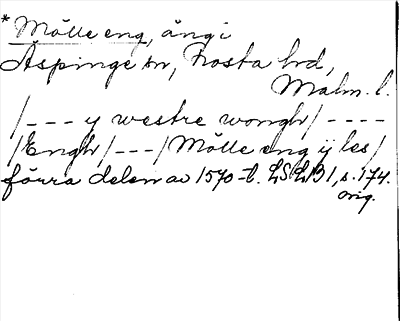 * Mölle eng, äng i
Äspinge sn, Frosta hrd,
Malm. l.
/--- y westre wongh/ ----
/Engh/---/Mölle eng ij les/
förra delen av 1570-t. LSLB1, s. 174.
orig.